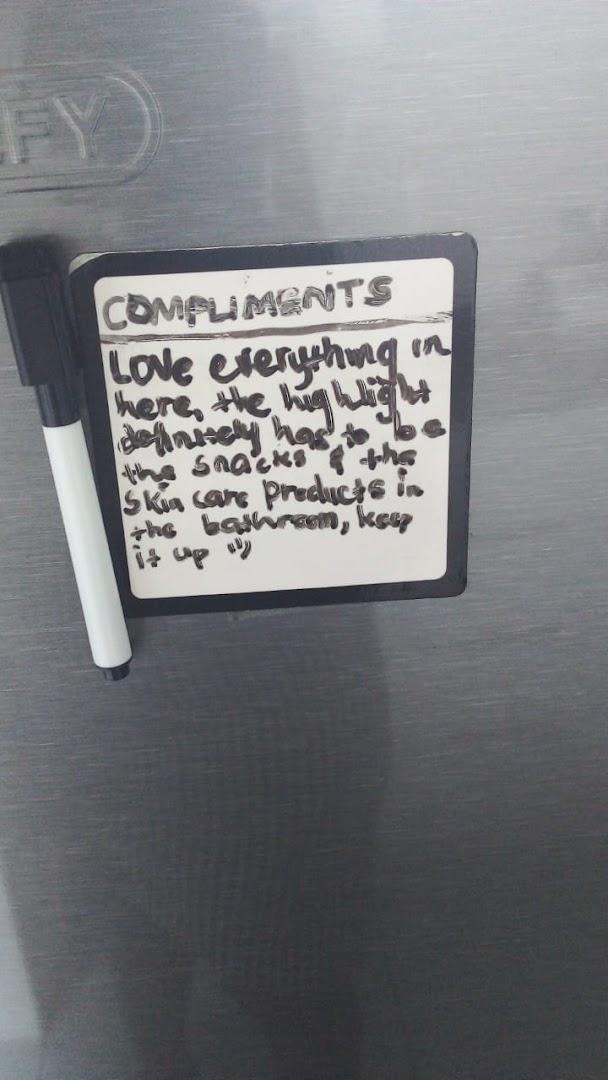 FY
COMPLIMENTS
Love everything in
here, the highlight
definitely has to be
the snacks & the
skin care products in
the bathroom, keep
it up :)